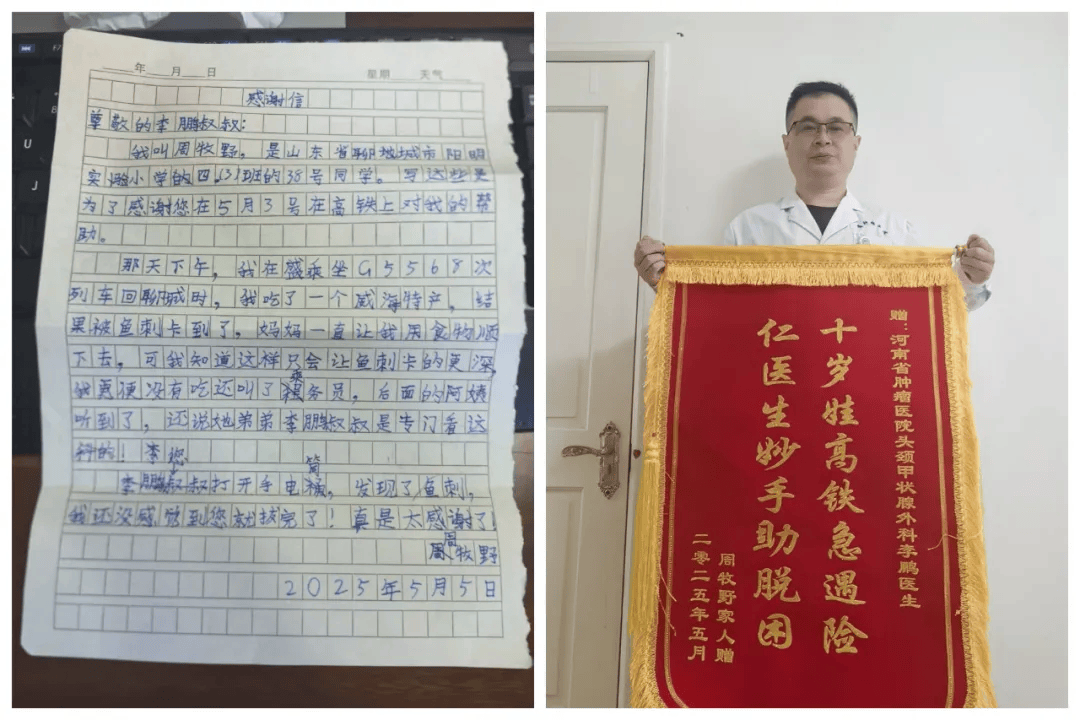 年 月 日 星期 天气
感谢信
尊敬的李鹏叔叔:
我叫周牧野,是山东省聊城市阳明
实验小学的四.(3)班的38号同学。写这些是
为了感谢您在5月3号在高铁上对我的帮
助。
那天下午,我在乘坐G5568次
列车回聊城时,我吃了一个威海特产,结
果被鱼刺卡到了。妈妈一直让我用食物顺
下去,可我知道这样只会让鱼刺卡的更深,
我更没有吃还叫了乘务员,后面的阿姨
听到了,还说她弟弟李鹏叔叔是专门看这
科的!
李鹏叔叔打开手电筒,发现了鱼刺,
我还没感觉到您就拔完了!真是太感谢了!
周牧野
2025年5月5日
赠:河南省肿瘤医院头颈甲状腺外科李鹏医生
十岁娃高铁急遇险
仁医生妙手助脱困
周牧野家人赠
二零二五年五月
U
J